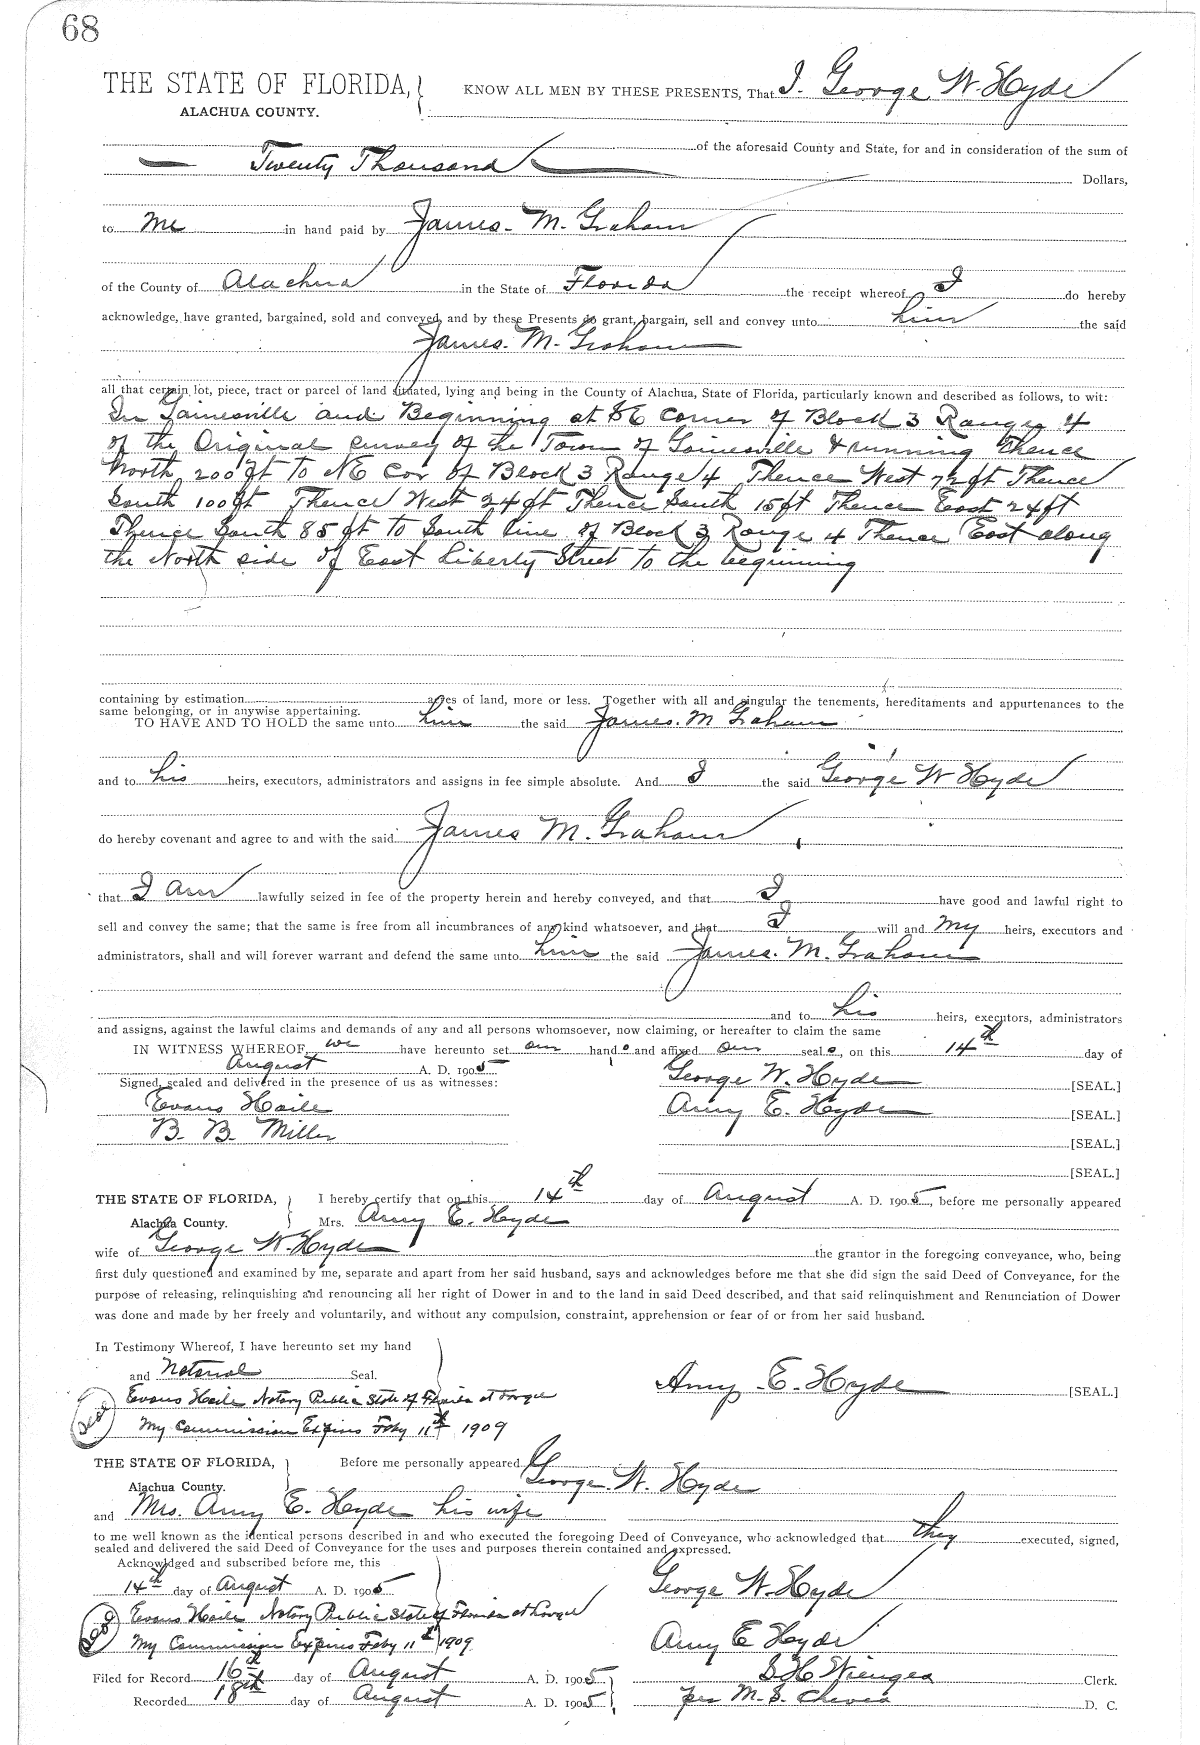 68
THE STATE OF FLORIDA, KNOW ALL MEN BY THESE PRESENTS, That I. George W. Hyde
ALACHUA COUNTY.
of the aforesaid County and State, for and in consideration of the sum of
Twenty Thousand Dollars,
to me in hand paid by James. M. Graham
of the County of Alachua in the State of Florida the receipt whereof I do hereby
acknowledge, have granted, bargained, sold and conveyed, and by these Presents do grant, bargain, sell and convey unto him the said
James. M. Graham
all that certain lot, piece, tract or parcel of land situated, lying and being in the County of Alachua, State of Florida, particularly known and described as follows, to wit:
In Gainesville and Beginning at SE Corner of Block 3 Range 4
of the Original survey of the Town of Gainesville & running thence
North 200 ft to NE Cor of Block 3 Range 4 Thence West 72 ft Thence
South 100 ft Thence West 24 ft Thence South 15 ft Thence East 24 ft
Thence South 85 ft to South line of Block 3 Range 4 Thence East along
the North side of East Liberty Street to the beginning
containing by estimation acres of land, more or less. Together with all and singular the tenements, hereditaments and appurtenances to the
same belonging, or in anywise appertaining.
TO HAVE AND TO HOLD the same unto him the said James. M Graham
and to his heirs, executors, administrators and assigns in fee simple absolute. And I the said George W Hyde
do hereby covenant and agree to and with the said James M. Graham
that I am lawfully seized in fee of the property herein and hereby conveyed, and that I have good and lawful right to
sell and convey the same; that the same is free from all incumbrances of any kind whatsoever, and that I will and my heirs, executors and
administrators, shall and will forever warrant and defend the same unto him the said James. M. Graham
and to his heirs, executors, administrators
and assigns, against the lawful claims and demands of any and all persons whomsoever, now claiming, or hereafter to claim the same
IN WITNESS WHEREOF, we have hereunto set our hands and affixed our seals, on this 14th day of
August A. D. 1905
Signed, sealed and delivered in the presence of us as witnesses: George W. Hyde [SEAL.]
Evans Haile Amy E. Hyde [SEAL.]
B. B. Miller [SEAL.]
[SEAL.]
THE STATE OF FLORIDA, I hereby certify that on this 14th day of August A. D. 1905, before me personally appeared
Alachua County. Mrs. Amy E. Hyde
wife of George W. Hyde the grantor in the foregoing conveyance, who, being
first duly questioned and examined by me, separate and apart from her said husband, says and acknowledges before me that she did sign the said Deed of Conveyance, for the
purpose of releasing, relinquishing and renouncing all her right of Dower in and to the land in said Deed described, and that said relinquishment and Renunciation of Dower
was done and made by her freely and voluntarily, and without any compulsion, constraint, apprehension or fear of or from her said husband.
In Testimony Whereof, I have hereunto set my hand
and Notarial Seal. Amy E. Hyde [SEAL.]
Seal Evans Haile Notary Public State of Florida at Large
My Commission Expires Feby 11th 1909
THE STATE OF FLORIDA, Before me personally appeared George. W. Hyde
Alachua County.
and Mrs. Amy E. Hyde his wife
to me well known as the identical persons described in and who executed the foregoing Deed of Conveyance, who acknowledged that they executed, signed,
sealed and delivered the said Deed of Conveyance for the uses and purposes therein contained and expressed.
Acknowledged and subscribed before me, this
14th day of August A. D. 1905 George W. Hyde
Seal Evans Haile Notary Public State of Florida at Large
My Commission Expires Feby 11th 1909 Amy E Hyde
Filed for Record 16th day of August A. D. 1905 S H Wienges Clerk.
Recorded 18th day of August A. D. 1905 per M. S. D. C.